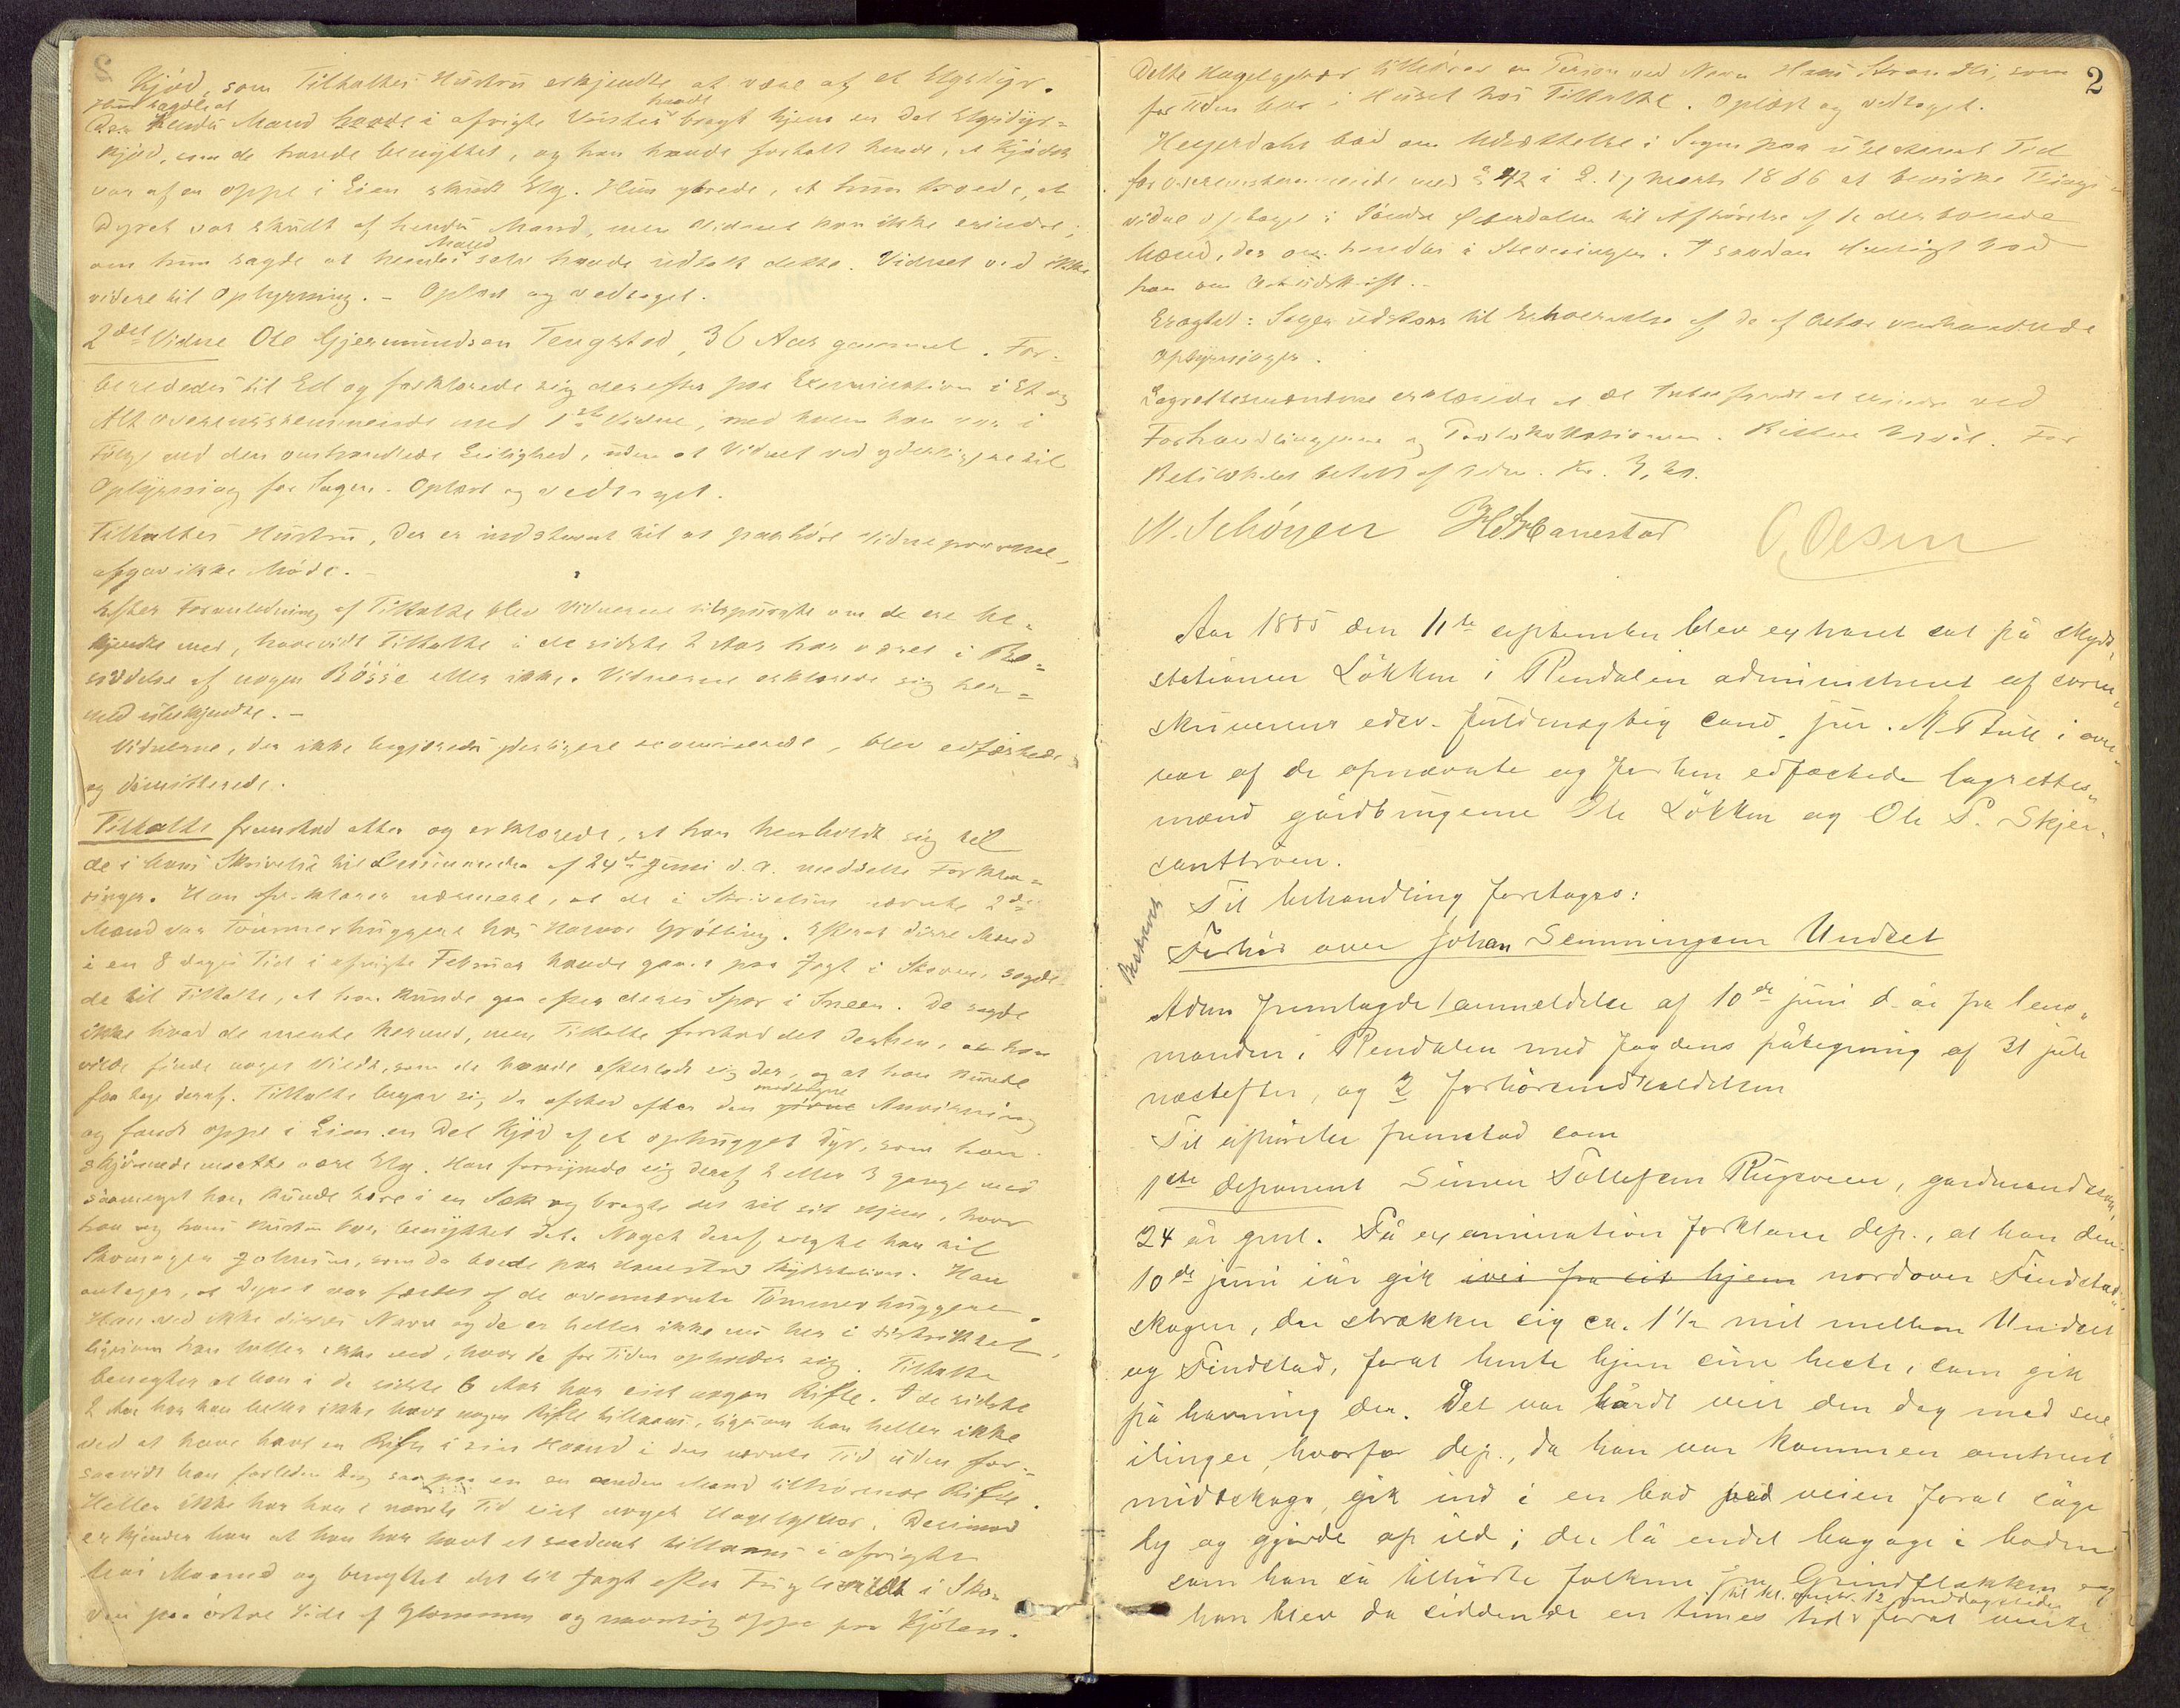 Kjöd, som Tiltaltes Hustru erkjendte at være af et Elgsdyr.
Hun sagde at
hendes Mand havde i afvigte Vinter havde bragt hjem en Del Elgsdyr=
kjöd, som de havde benyttet, og han havde fortalt hende, at Kjödet
var af en oppe i Lien skudt Elg. Hun ytrede, at hun troede, at
Dyret var skudt af hendes Mand, men Vidnet kan ikke erindre,
om hun sagde at hendes Mand selv havde udtalt dette. Vidnet ved ikke
videre til Oplysning. - Oplæst og vedtaget.
2det Vidne Ole Gjermundsen Tengstad, 36 Aar gammel. For=
beredtes til Ed og forklarede sig derefter paa Examination i Et og
Alt overensstemmende med 1ste Vidne, med hvem han var i
Fölge ved den omhandlede Leilighed, uden at Vidnet ved yderligere til
Oplysning for Sagen. Oplæst og vedtaget.
Tiltaltes Hustru, der er indstevnt til at paahöre Vidneprovene,
afgav ikke Möde. -
Efter Foranledning af Tiltalte blev Vidnerne tilspurgte om de ere be=
kjendte med, hvorvidt Tiltalte i de sidste 2 Aar har været i Be=
siddelse af nogen Bösse eller ikke. Vidnerne erklærede sig her=
med ubekjendte. -
Vidnerne, der ikke begjæredes yderligere examinerede, blev edfæstede
og dimitterede.
Tiltalte fremstod atter og erklærede, at han henholdt sig til
de i hans Skrivelse til Lensmanden af 24de Juni d. A. meddelte Forkla=
ringer. Han forklarer nærmere, at de i Skrivelsen nævnte 2de
Mænd var Tömmerhuggere hos Halvor Grötting. Efterat disse Mænd
i en 8 dages Tid i afvigte Februar havde gaaet paa Jagt i Skoven, sagde
de til Tiltalte, at han kunde gaa efter deres Spor i Sneen. De sagde
ikke hvad de mente hermed, men Tiltalte forstod det derhen, at han
vilde finde noget Vildt, som de havde efterladt sig der, og at han kunde
faa tage deraf. Tiltalte begav sig da afsted efter den givne meddelte Anvisning
og fandt oppe i Lien en Del Kjöd af et ophugget Dyr, som han
skjönnede maatte være Elg. Han forsynede sig deraf 2 eller 3 gange med
saameget han kunde bære i en Sæk og bragte det til sit Hjem, hvor
han og hans Hustru har benyttet det. Noget deraf solgte han til
Skomager Johnsen, som da boede paa Hanestad Skydsstation. Han
antager, at Dyret var fældet af de ovennævnte Tömmerhuggere.
Han ved ikke disses Navn og de er heller ikke nu her i Distriktet,
ligesom han heller ikke ved, hvor de for Tiden opholder sig. Tiltalte
benegter at han i de sidste 6 Aar har eiet nogen Rifle. I de sidste
2 Aar har han heller ikke havt nogen Rifle tillaans, ligesom han heller ikke
ved at have havt en Rifle i sin Haand i den nævnte Tid uden for=
saavidt han forleden Dag saa paa en en anden Mand tilhörende Rifle.
Heller ikke har han i nævnte Tid eiet noget Haglgevær. Derimod
erkjender han at han har havt et saadant tillaans i afvigte
Mai Maaned og benyttet det til Jagt efter Fuglevildt i Sko=
ven paa östre Side af Glommen og navnlig oppe paa Kjölen.
2
Dette Haglgevær tilhörer en Person ved Navn Hans Strandli, som
for Tiden bor i Huset hos Tiltalte. Oplæst og vedtaget.
Heyerdahl bad om Udsættelse i Sagen paa ubestemt Tid
for overensstemmende med § 42 i L. 17 Marts 1866 at bevirke Things=
vidne optaget i Söndre Østerdalen til Afhörelse af de derboende
Mænd, der omhandles i Stevningen. I saadan Henseende bad
han om Actudskrift. -
Eragtet: Sagen udstaar til Erhvervelse af de af Actor omhandlede
Oplysninger.
Lagrettesmændene erklærede at de Intet fandt at erindre ved
Forhandlingerne og Protokollationen. Retten hævet. For
Retslokalet betalt af Adm. Kr. 3,20.
N. Schöyen H Hanestad O. Olsen
Aar 1885 den 11te september blev extraret sat på skyds,
stationen Lökken i Rendalen administreret af soren,
skriverens edsv. fuldmægtig cand. jur. M Bull i over,
vær af de opnævnte og forhen edfæstede lagrettes,
mænd gårdbrugerne Ole Lökken og Ole P. Skjer,
Til behandling foretages:
Beskrevet
Forhör over Johan Semmingsen Undset
Adm fremlagde 1 anmeldelse af 10de juni d. år fra lens,
manden i Rendalen med fogdens påtegning af 31 juli
næstefter, og 2 forhörsindkaldelsen
Til afhörelse fremstod som
1ste deponent Simen Tollefsen Rugsveen, gårdmandssön,
24 år gml. På examination forklarer dep., at han den
10de juni iår gik ivei fra sit hjem nordover Findstad,
skogen, der strækker sig ca. 1 1/2 mil mellem Undset
og Findstad, forat hente hjem sine heste, som gik
på havning der. Det var hårdt veir den dag med sne,
ilinger, hvorfor dep., da han var kommen omtrent
midtskogs, gik ind i en bod ved veien forat söge
ly og gjorde op ild; der lå endel bagage i boden
som han så tilhörte folkene fra Grindflækken og
han blev da siddende en times tid til kl. omtr. 12 middagsleden forat vente